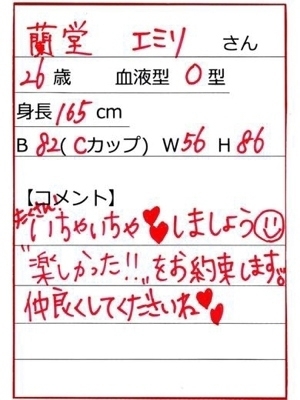 蘭堂 エミリ さん
26歳 血液型 O型
身長165cm
B 82(Cカップ) W56 H86
【コメント】
たくさん
いちゃいちゃ♥♥しましょう
"楽しかった!!"をお約束します
仲良くしてくださいね♥♥